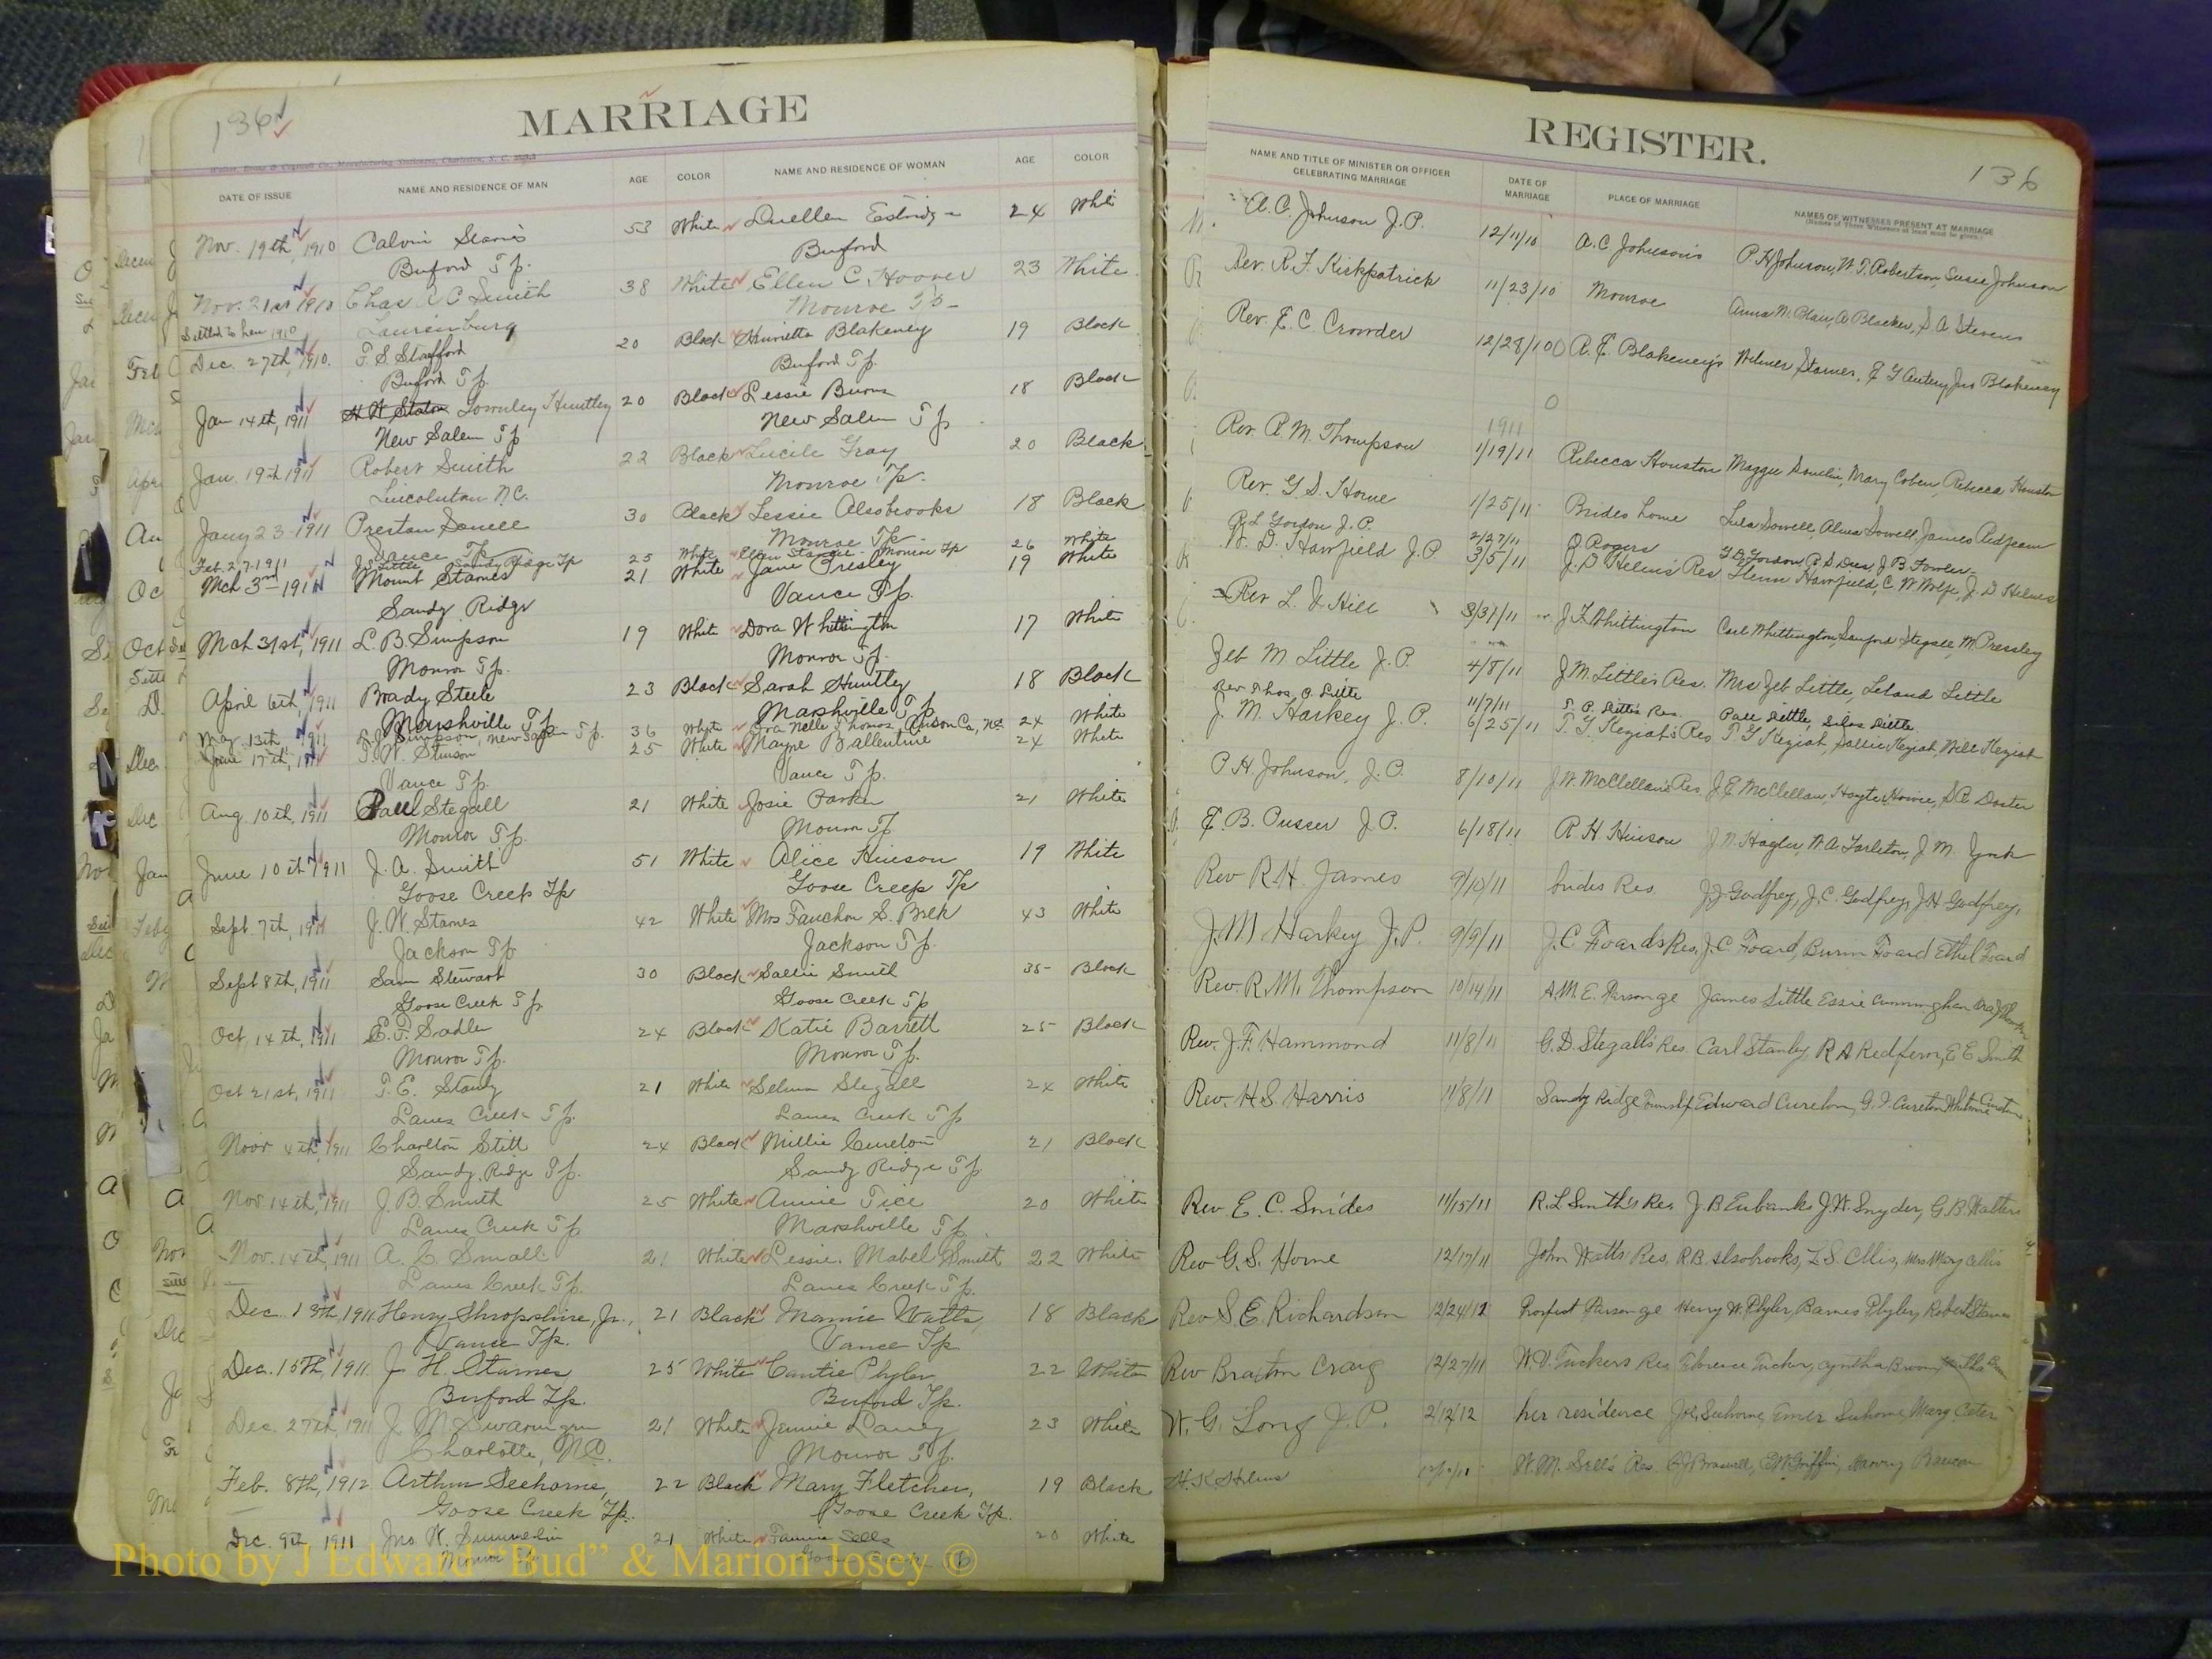 136
MARRIAGE
DATE OF ISSUE NAME AND RESIDENCE OF MAN AGE COLOR NAME AND RESIDENCE OF WOMAN AGE COLOR
Nov. 19th, 1910 Calvin Starnes 53 White 24
Buford Tp. Buford
Nov. 21st 1910 Chas Smith 38 White Ellen C. Hoover 23 White
Laurinburg Monroe Tp
Dec. 27th, 1910. T. S. Stafford 20 Black Henrietta Blakeney 19 Black
Buford Tp. Buford Tp.
Jan 14th, 1911 H W Staton Townley Huntley 20 Black Lessie Burns 18 Black
New Salem Tp New Salem Tp
Jan. 19th 1911 Robert Smith 22 Black Lucile Gray 20 Black
Lincolnton N.C. Monroe Tp.
Jany 23-1911 Preston 30 Black Lessie Alsobrooks 18 Black
Vance Tp Monroe Tp.
Feb. 27-1911 Sandy Ridge Tp 25 White Monroe Tp 26 White
Mch 3rd-1911 Mount Starnes 21 White Jane Presley 19 White
Sandy Ridge Vance Tp.
Mch 31st, 1911 L. B. Simpson 19 White Dora Whittington 17 White
Monroe Tp. Monroe Tp.
April 6th, 1911 Brady Steele 23 Black Sarah Huntley 18 Black
Marshville Tp Marshville Tp
May 13th, 1911 Simpson, New Salem Tp. 36 White Dora Nelle Thomas, Anson Co, N.C. 24 White
June 17th, 1911 T. W. Stinson 25 White Mayne Ballentine 24 White
Vance Tp. Vance Tp.
Aug. 10th, 1911 Paul Stegall 21 White Josie Parker 21 White
Monroe Tp. Monroe Tp
June 10th 1911 J. A. Smith 51 White Alice Hinson 19 White
Goose Creek Tp Goose Creek Tp
Sept 7th, 1911 J. W. Starnes 42 White Mrs Fanchon S. Belk 43 White
Jackson Tp Jackson Tp.
Sept 8th, 1911 Sam Stewart 30 Black Sallie Smith 35 Black
Goose Creek Tp Goose Creek Tp
Oct 14th, 1911 E. F. Sadler 24 Black Katie Barrett 25 Black
Monroe Tp. Monroe Tp.
Oct 21st, 1911 T. E. Stanly 21 White Selma Stegall 24 White
Lanes Creek Tp. Lanes Creek Tp.
Novr 4th, 1911 Charlton Stitt 24 Black Millie Cureton 21 Black
Sandy Ridge Tp. Sandy Ridge Tp
Nov. 14th, 1911 J. B. Smith 25 White Annie Tice 20 White
Lanes Creek Tp Marshville Tp
Nov. 14th, 1911 A. C. Small 21 White Lessie Mabel Smith 22 White
Lanes Creek Tp. Lanes Creek Tp.
Dec. 13th, 1911 Henry Shropshire, Jr., 21 Black Mamie Watts, 18 Black
Vance Tp. Vance Tp
Dec. 15TH, 1911. J H. Starnes 25 White Cantie Plyler 22 White
Buford Tp. Buford Tp.
Dec. 27th, 1911 J. M. Swaringen 21 White Jennie Laney 23 White
Charlotte, N.C. Monroe Tp.
Feb. 8th, 1912 Arthur Seehorne, 22 Black Mary Fletcher, 19 Black
Goose Creek Tp. Goose Creek Tp.
Dec. 9th, 1911 Jno. W. 21 White Fannie Sells 20 White
REGISTER.
136
NAME AND TITLE OF MINISTER OR OFFICER CELEBRATING MARRIAGE DATE OF MARRIAGE PLACE OF MARRIAGE NAMES OF WITNESSES PRESENT AT MARRIAGE
(Names of Three Witnesses at least must be given.)
A. C. Johnson J.P. 12/11/10 A. C Johnson's P H Johnson, W. T. Robertson, Susie Johnson
Rev. R. F. Kirkpatrick 11/23/10 Monroe Anna M. Blair, S. A. Stevens
Rev. E. C. Crowder 12/28/10 A. E. Blakeney's Wilmer Starnes, Jno Blakeney
1911
Rev. R. M. Thompson 1/19/11 Rebecca Houston Maggie Mary Rebecca Houston
Rev. G. S. Horne 1/25/11 Brides home Lula Sowell, Alma Sowell, James Redfearn
R. L Gordon J.P. 2/27/11 Rogers J. B. Fowler
W. D. Hawfield J.P. 3/5/11 J. D Helms Res Hawfield, C. W Wolfe, J. D Helms
Rev L. Hill 3/31/11 J F Whittington Carl Whittington, Sanford Stegall, M Pressley
Zeb M Little J.P. 4/8/11 J. M. Little's Res. Mrs Zeb Little, Leland Little
Rev Thos. Little 11/7/11 Little's Res. Little, Silas Little
J. M. Harkey J. P. 6/25/11 T. G Keziah's Res T G Keziah, Sallie Keziah, Will Keziah
P. H. Johnson, J. P. 8/10/11 J. W. McClellan's Res J. E McClellan, Hoyte Howie, Doster
E. B. Pusser J. P. 6/18/11 R H Hinson J. W. Hagler, W. A. Tarleton, J M. York
Rev R. H. James 9/10/11 brides Res. J. J. Godfrey, J. C. Godfrey, J. H Godfrey,
J. M Harkey J.P. 9/9/11 J. C. Foards Res, J. C. Foard, Burm Foard Ethel Foard
Rev. R. M. Thompson 10/14/11 A. M. E. Parsonge James Little Essie Cunningham
Rev. J. F. Hammond 11/8/11 G. D. Stegall's Res Carl Stanly, R A Redfern, E E Smith
Rev. H. S Harris 11/8/11 Sandy Ridge Townsp Edward Cureton, G. I. Cureton
Rev E. C. Snides 11/15/11 R. L Smith's Res J. B Eubanks J. W. Snyder, G. B. Walters
Rev G. S. Horne 12/17/11 John Watts Res. R B. Alsobrooks, Z. S. Ellis, Mrs Mary Ellis
Rev S. E. Richardson 12/24/12 Prospect Parsonge Henry W. Plyler, Barnes Plyler, Robert Starnes
Rev Braxton Craig 12/27/11 W. D. Tuckers Res Florence Tucker, Cyntha
W. G. Long J. P. 2/12/12 her residence Joe Seehorne
H. K Helms W. M. Sell's Res. Braswell, E. W. Griffin
Photo by J Edward "Bud" & Marion Josey ©